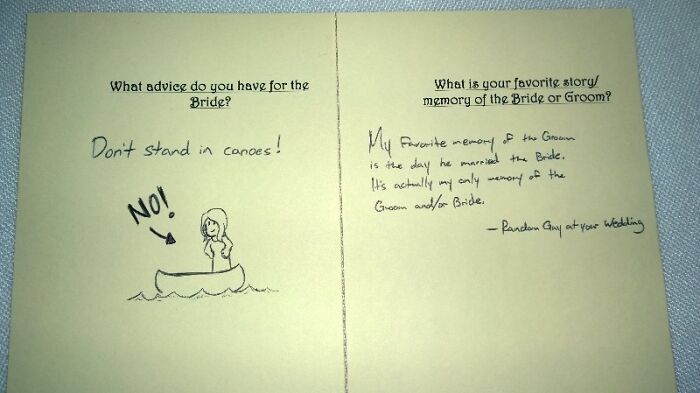 What advice do you have for the
Bride?
Don't stand in canoes!
NO!
What is your favorite story/
memory of the Bride or Groom?
My Favorite memory of the Groom
is the day he married the Bride.
It's actually my only memory of the
Groom and/or Bride.
– Random Guy at your Wedding